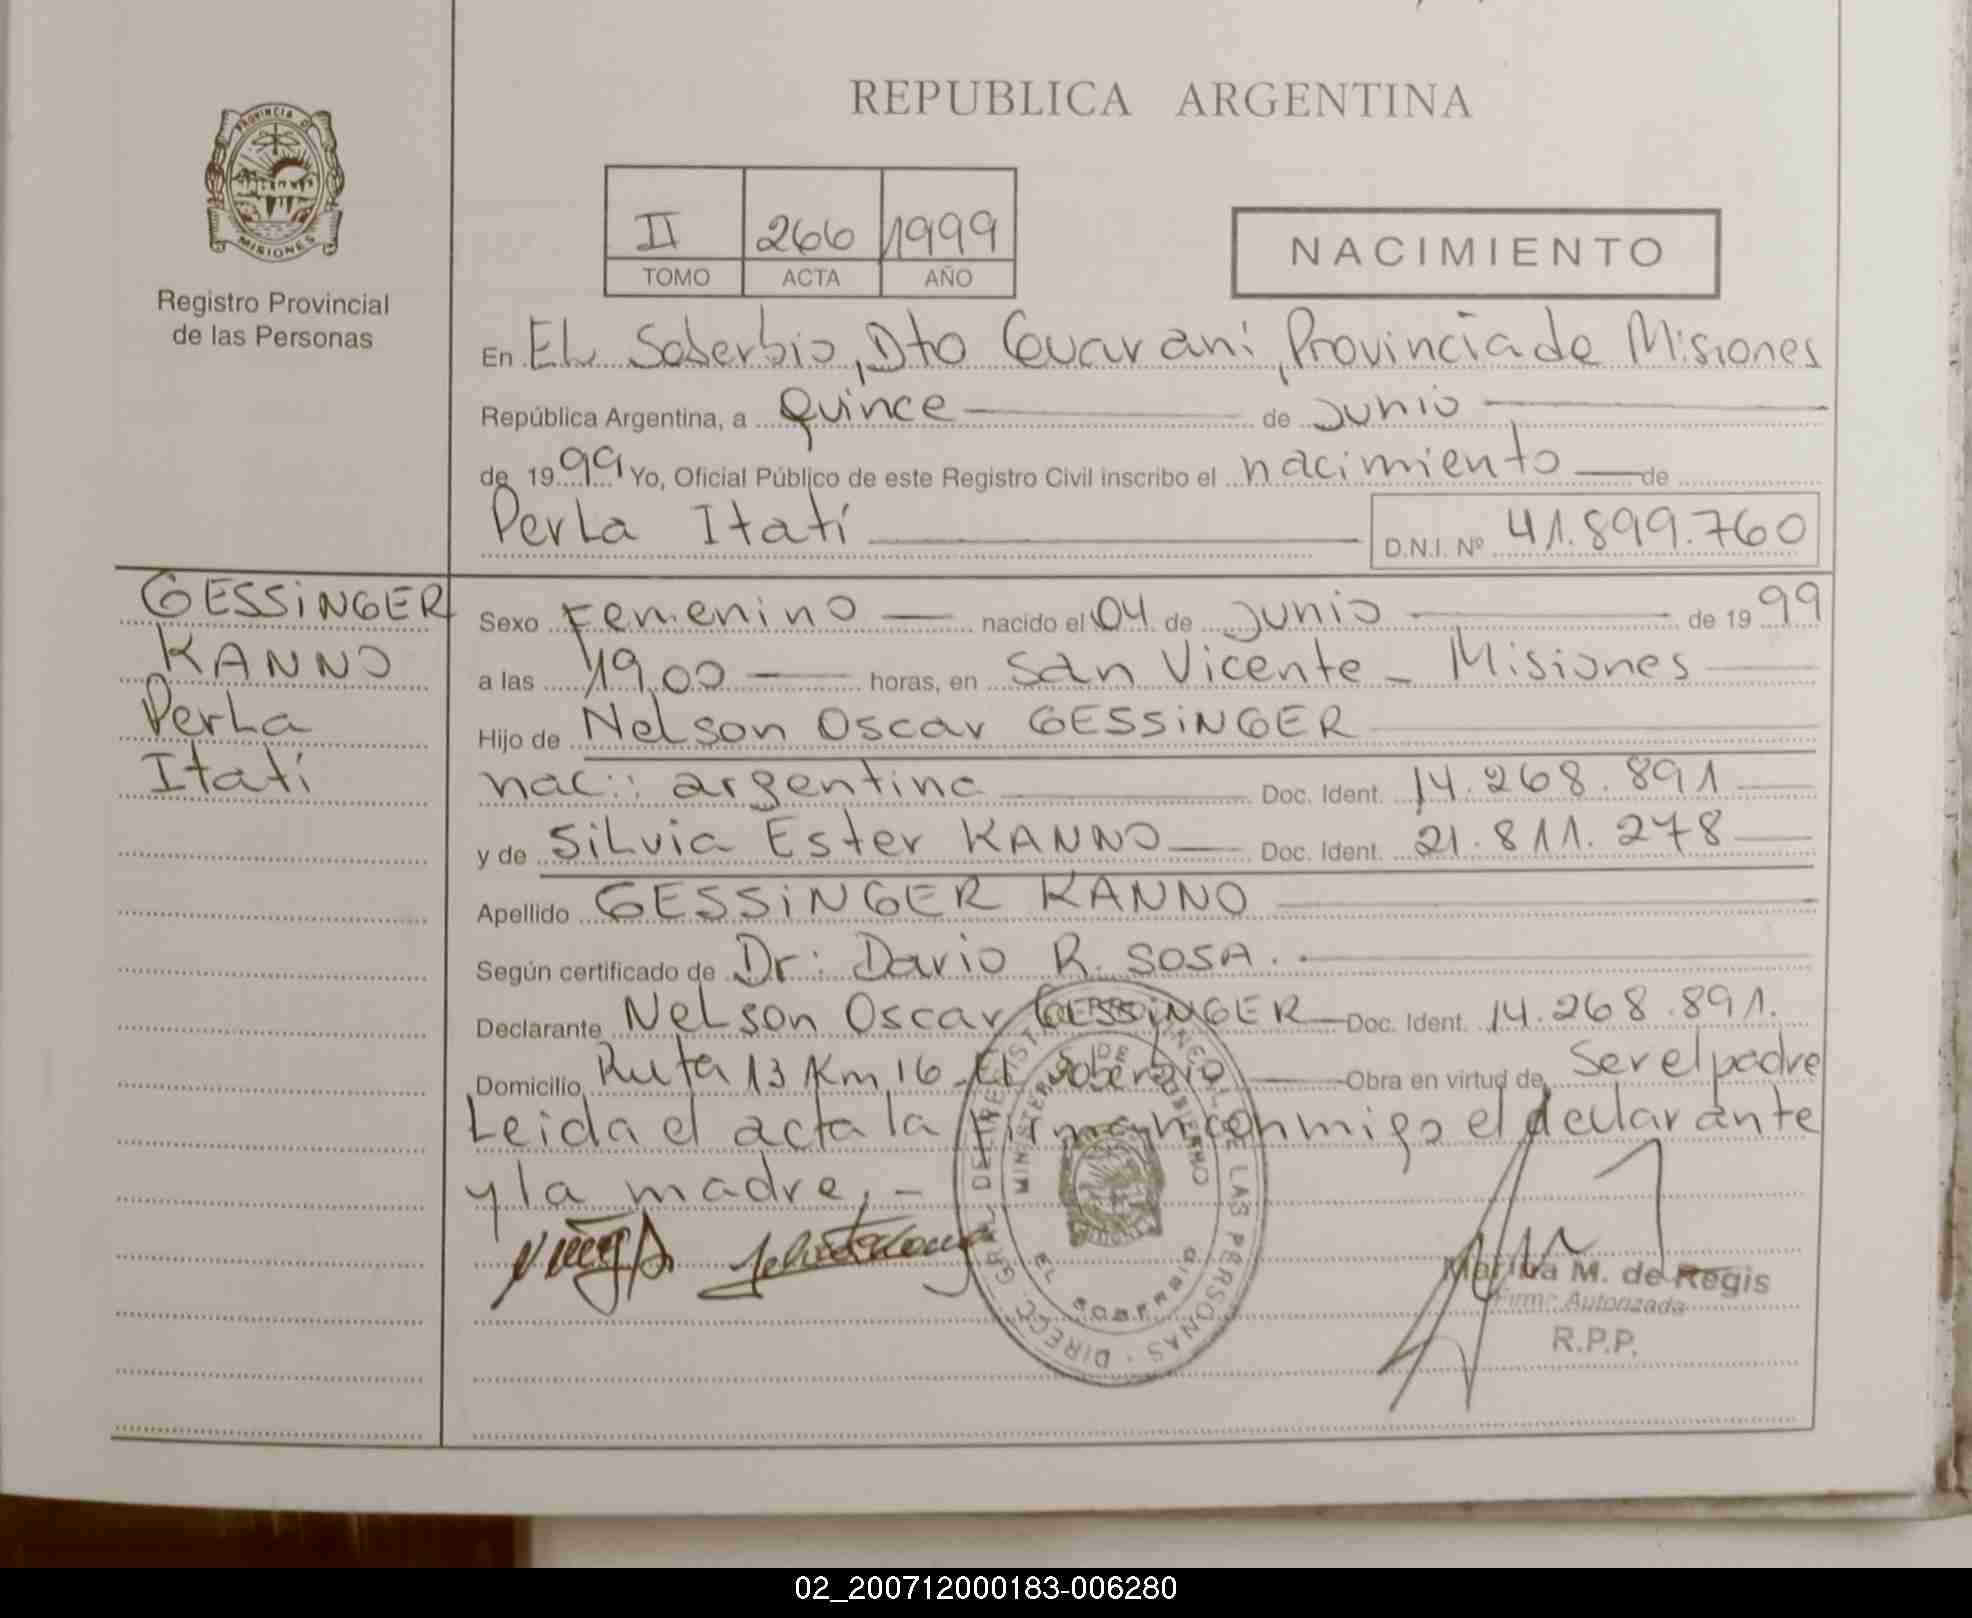 REPUBLICA ARGENTINA
PROVINCIA DE
MISIONES
Registro Provincial
de las Personas
II 266 1999
TOMO ACTA AÑO
NACIMIENTO
En EL Soberbio, Dto Guarani, Provincia de Misiones
República Argentina, a quince de Junio
de 1999 Yo, Oficial Público de este Registro Civil inscribo el nacimiento de
PerLa Itatí D.N.I. Nº 41.899.760
GESSiNGER
KANNO
PerLa
Itatí
Sexo Femenino nacido el 04 de Junio de 1999
a las 19,00 horas, en San Vicente - Misiones
Hijo de Nelson Oscar GESSiNGER
nac:: argentina Doc. Ident. 14.268.891
y de SiLvia Ester KANNO Doc. Ident. 21.811.278
Apellido GESSiNGER KANNO
Según certificado de Dr: Dario R. SOSA.
Declarante NeLson Oscar GESSiNGER Doc. Ident. 14.268.891.
Domicilio Ruta 13 Km 16 - El Soberbio Obra en virtud de Ser el padre
Leida el acta la firman conmigo el declarante
y la madre. -
DIRECC. GRAL DEL REGISTRO PROVINCIAL DE LAS PERSONAS
MINISTERIO DE GOBIERNO
EL SOBERBIO
Marina M. de Regis
Firma Autorizada
R.P.P.
02_200712000183-006280